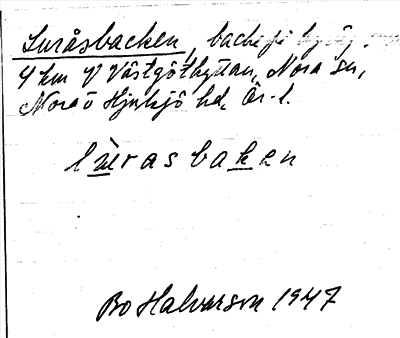 Luråsbacken, backe på
4 km V Västgöthyttan, Nora sn,
Nora o Hjulsjö hd, Ör. l.
lùrasbaken
Bo Halvarson 1947